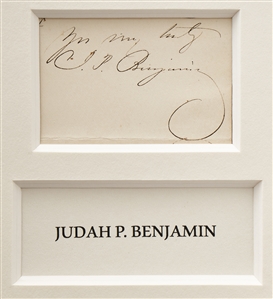 Yrs very truly
J. P. Benjamin
JUDAH P. BENJAMIN